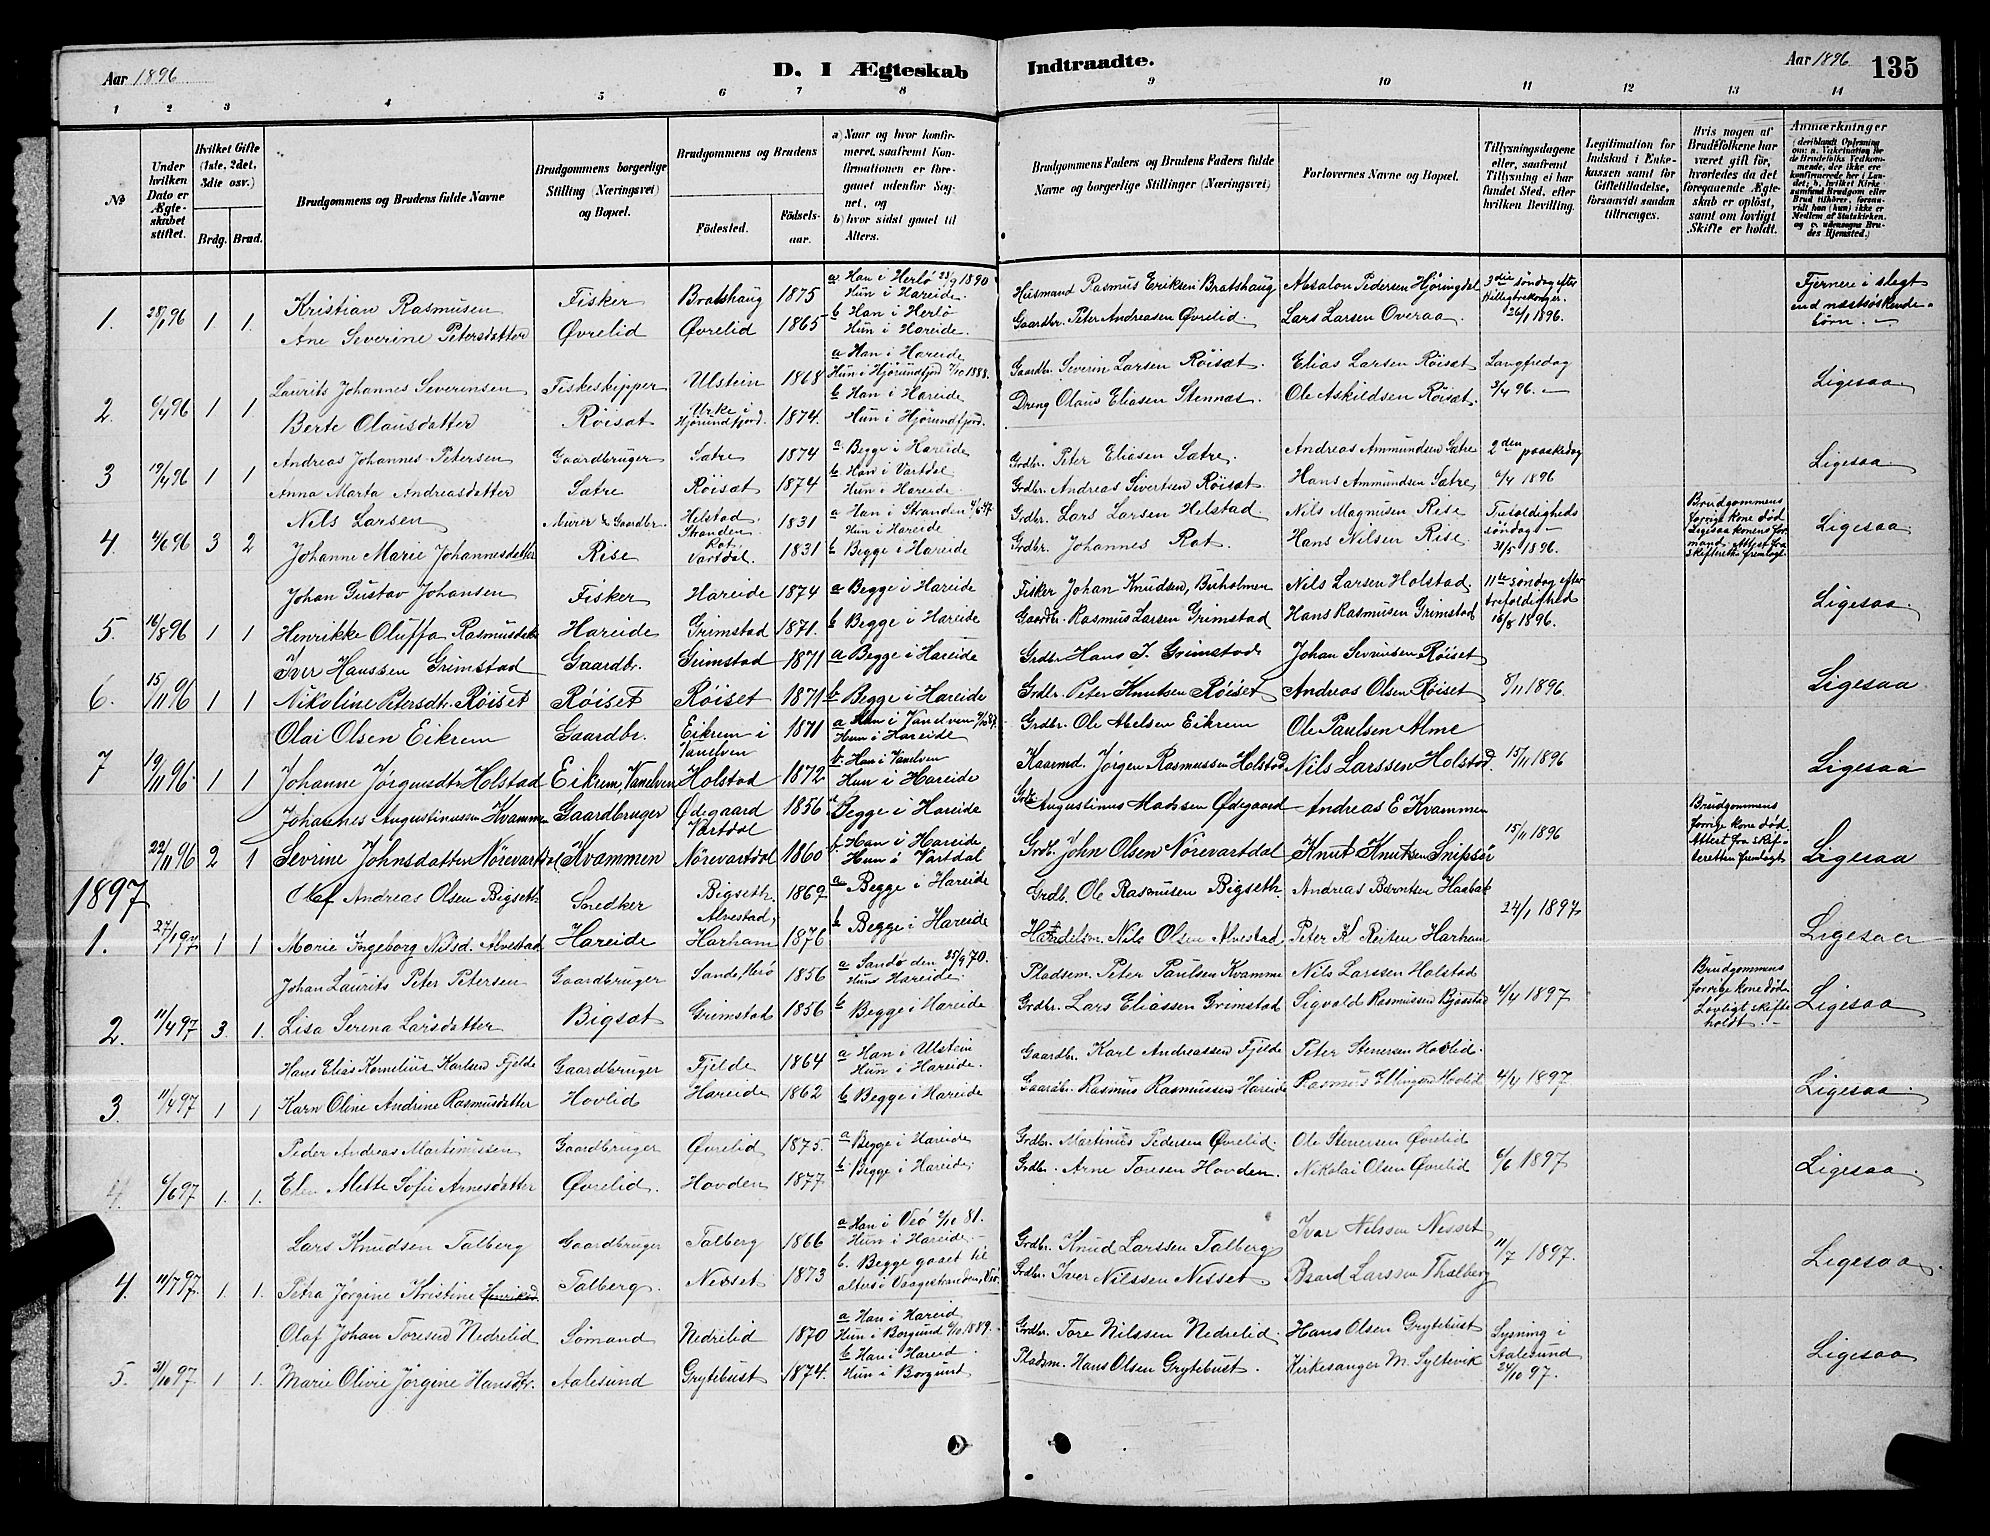 Aar 1896
D. I Ægteskab Indtraadte.
Aar 1896 135
1 2 3 4 5 6 7 8 9 10 11 12 13 14
№
Under hvilken Dato er Ægteskabet stiftet.
Hvilket Gifte (1ste, 2det, 3dte osv.)
Brdg. Brud.
Brudgommens og Brudens fulde Navne
Brudgommens borgerlige Stilling (Næringsvei) og Bopæl.
Brudgommens og Brudens
Födested.
Födselsaar.
a) Naar og hvor konfirmeret, saafremt Konfirmationen er foregaaet udenfor Sognet, og
b) hvor sidst gaaet til Alters.
Brudgommens Faders og Brudens Faders fulde Navne og borgerlige Stillinger (Næringsvei)
Forlovernes Navne og Bopæl.
Tillysningsdagene eller, saafremt Tillysning ei har fundet Sted, efter hvilken Bevilling.
Legitimation for Indskud i Enkekassen samt for Giftetilladelse, forsaavidt saadan tiltrænges.
Hvis nogen af Brudefolkene har været gift för, hvorledes da det foregaaende Ægteskab er oplöst, samt om lovligt Skifte er holdt.
Anmærkninger
1. 28/1 96 1 1.
Kristian Rasmusen Fisker Bratshaug 1875 a Han i Herlö 28/9 1890 Hun i Hareide. Husmand Rasmus Eriksen Bratshaug Absalon Pedersen Hjöringdal 3die söndag efter Helligtrekonger. 26/1 1896. Fjernere i slegt end næstsöskendebörn.
Ane Severine Petersdatter Øvrelid 1865 b Han i Herlö Hun i Hareide. Gaardbr. Peter Andreasen Øvrelid. Lars Larsen Overaa.
2. 6/4 96 1 1.
Laurits Johannes Severinsen Fiskeskipper Ulstein 1868 a Han i Hareide Hun i Hjörundfjord 7/10 1888. Gaardbr. Severin Larsen Röisæt. Elias Larsen Röisæt Langfredag 3/4 96. Ligesaa
Berte Olausdatter Röisat Urke i Hjörundfjord. 1874. b Han i Hareide Hun i Hjörundfjord. Dreng Olaus Eliasen Stennæs. Ole Askildsen Röisæt.
3 19/4 96 1 1
Andreas Johannes Petersen Gaardbruger Sætre 1874 a. Begge i Hareide Grdbr. Peter Eliasen Sætre. Andreas Ammundsen Sætre 2den paaskedag 6/4 1896 Ligesaa
Anna Marta Andreasdatter Sætre Röisæt 1874 b. Han i Vartdal Hun i Hareide. Grdbr. Andreas Sivertsen Röisæt Hans Ammundsen Sætre
4. 4/6 96 3 2
Nils Larsen Murer & Gaardbr. Helstad Stranden. 1831 a Han i Stranden 4/6 47. Hun i Hareide Grdbr. Lars Larsen Helstad. Nils Magnusen Rise Trefoldigheds söndag 31/5 1896. Brudgommens forrige kone död Ligesaa konens formand. Attest fra skifteretten fremlagt Ligesaa
Johanne Marie Johannesdatter Rise Rot Vartdal. 1831 b Begge i Hareide Grdbr. Johannes Rot. Hans Nilsen Rise.
5. 16/8 96 1 1
Johan Gustav Johansen Fisker Hareide 1874 a Begge i Hareide Fisker Johan Knudsen, Buholmen Nils Larsen Holstad. 11te söndag efter trefoldighed 16/8 1896. Ligesaa
Henrikke Oluffa Rasmusdatter Hareide Grimstad 1871. b Begge i Hareide Gaardbr. Rasmus Larsen Grimstad Hans Rasmusen Grimstad
6. 15/11 96 1 1
Iver Hanssen Grimstad Gaardbr. Grimstad 1871 a Begge i Hareide Grdbr Hans I. Grimstad Johan Sevrinsen Röiset 8/11 1896. Ligesaa
Nikoline Petersdtr. Röiset Röiset Röiset 1871 b Begge i Hareide Grdbr. Peter Knutsen Röiset Andreas Olsen Röiset
7 19/11 96. 1 1
Olai Olsen Eikrem Gaardbr. Eikrem i Vanelven 1871 a Han i Vanelven Hun i Hareide Grdbr. Ole Abelsen Eikrem Ole Paulsen Alme 15/11 1896 Ligesaa
Johanne Jörgensdtr Holstad Eikrem, Vanelven Holstad 1872 b. Han i Vanelven Hun i Hareide Kaarmd. Jörgen Rasmussen Holstad Nils Larssen Holstad.
22/11 96 2 1
Johannes Augustinusen Kvammen Gaardbruger Ödegaard Vartdal 1856 a Begge i Hareide Grdb. Augustinus Madssen Ödegaard Andreas E Kvammen 15/11 1896 Brudgommens forrige kone död. Attest fra skifteretten fremlagt Ligesaa
Sevrine Johnsdatter Nörevartdal Kvammen Nörevartdal 1860 b. Han i Hareide Hun i Vartdal Grdb. John Olsen Nörevartdal Knut Knutsen Snipsöir
1897
1. 27/1 97 1 1
Olaf Andreas Olsen Bigseth Snedker Bigseth. 1862 a Begge i Hareide Grdb. Ole Rasmusen Bigseth. Andreas Berntsen Haabak 24/1 1897 Ligesaa
Marie Ingeborg Nilsd. Alvestad Hareide Alvestad, Harham 1876 b Begge i Hareide Handelsm. Nils Olsen Alvestad Peter K Reiten Harham
2. 11/4 97 3. 1.
Johan Laurits Peter Petersen Gaardbruger Sande, Herö 1856 a Sandö den 25/9 70. Hun i Hareide. Pladsm. Peter Paulsen Kvamme Nils Larssen Holstad 4/4 1897 Brudgommens forrige kone död. Lovligt skifte holdt. Ligesaa
Lisa Serena Larsdatter Bigsæt Grimstad 1856 b Begge i Hareide Grdbr. Lars Eliassen Grimstad Sigvald Rasmussen Bjåstad
3 11/4 97 1 1
Hans Elias Kornelius Karlsen Fjelde Gaardbruger Fjelde 1864 a Han i Ulstein Hun i Hareide. Gaardbr. Karl Andreassen Fjelde Peter Stenersen Hovlid. 4/4 1897 Ligesaa
Karn Oline Andrine Rasmusdatter Hovlid Hareide 1862 b Begge i Hareide Gaardbr. Rasmus Rasmussen Hareide Rasmus Ellingsen Hovlid
4. 6/6 97 1. 1.
Peder Andreas Martinussen Gaardbruger Øvrelid 1875. a Begge i Hareide Grdbr. Martinus Pedersen Øvrelid. Ole Stenersen Øvrelid 6/6 1897 Ligesaa.
Elen Alette Sofie Arnesdatter Øvrelid. Hovden 1877. b Begge i Hareide. Grdbr. Arne Toresen Hovden. Nikolai Olsen Øvrelid
4. 11/7 97. 1. 1.
Lars Knudsen Talberg Gaardbruger Talberg 1866 a Han i Veö 2/10 81. Hun i Hareide. Grdbr. Knud Larssen Talberg Ivar Nilssen Nesset 11/7 1897. Ligesaa.
Petra Jörgine Kristine Talberg. Nesset 1873 b. Begge gaaet til alters i Vaagestranden, Veö. Grdbr. Iver Nilssen Nesset Baard Larssen Thalberg
5. 31/10 97. 1 1.
Olaf Johan Toresen Nedrelid Sömand Nedrelid 1870 a Han i Hareid Hun i Borgund 6/10 1889. Grdbr. Tore Nilssen Nedrelid. Hans Olsen Grytebust Lysning i Aalesund 24/10 97. Ligesaa
Marie Olivie Jörgine Hansdtr. Aalesund Grytebust 1874. b Han i Hareid. Hun i Borgund Pladsm. Hans Olsen Grytebust. Kirkesanger M. Syltevik